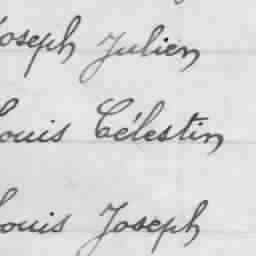 Joseph Julien
Louis Célestin
Louis Joseph